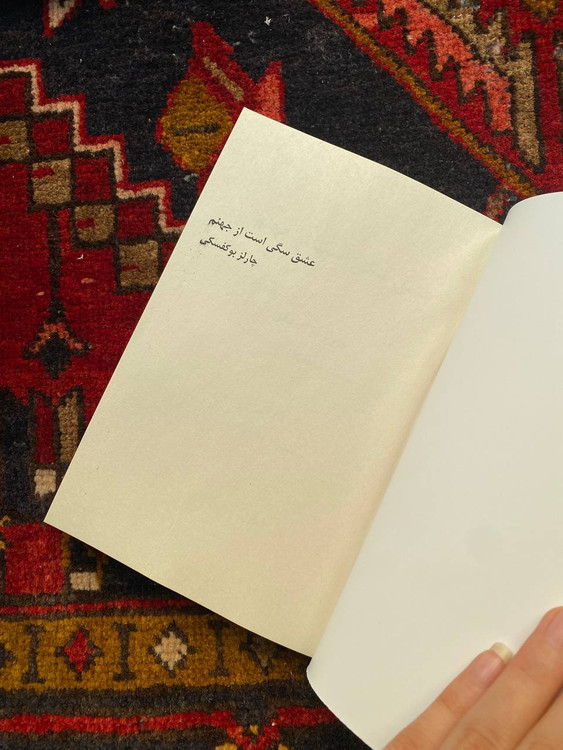 عشق سگی است از جهنم
چارلز بوکفسکی